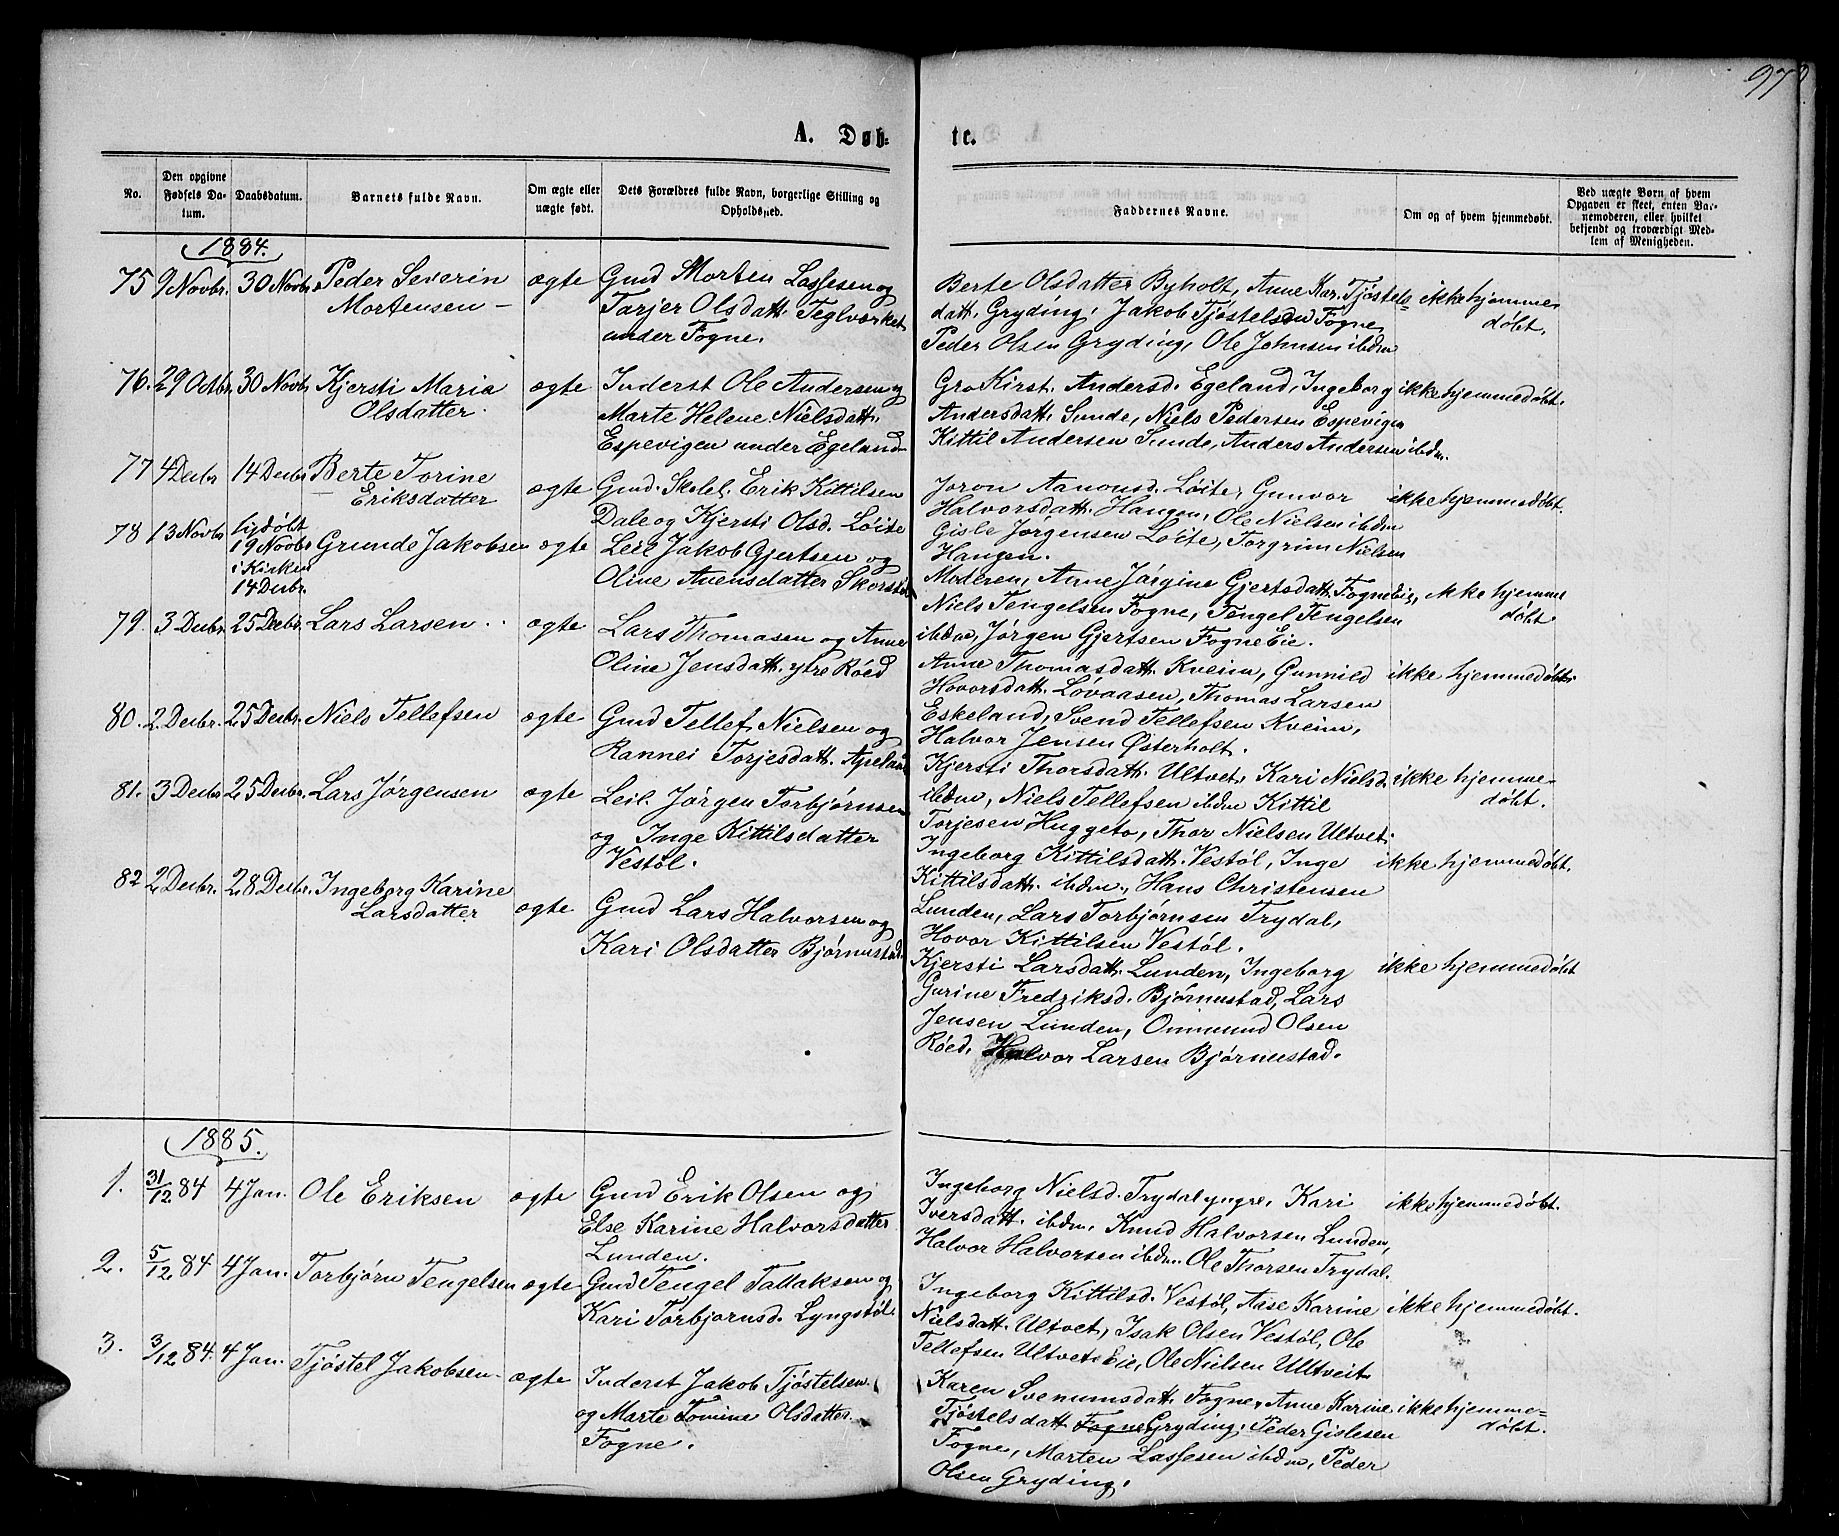 97
A. Døb-
te.
No.
Den opgivne Fødsels Datum.
Daabsdatum.
Barnets fulde Navn.
Om ægte eller uægte født.
Dets Forældres fulde Navn, borgerlige Stilling og Opholdssted.
Faddernes Navne.
Om og af hvem hjemmedøbt.
Ved uægte Børn af hvem Opgaven er skeet, enten Barnemoderen, eller hvilket bekjendt og troværdigt Medlem af Menigheden.
1884.
75 9 Novbr. 30 Novbr. Peder Severin
Mortensen –
ægte
Gmd Morten Lassesen og
Torjer Olsdatt. Teglværket
under Fogne.
Berte Olsdatter Byholt, Anne Kar. Tjøstels=
datt. Gryding, Jakob Tjøstelsen Fogne,
Peder Olsen Gryding, Ole Johnsen ibdm
ikke hjemme
døbt.
76. 29 Octbr. 30 Novbr. Kjersti Maria
Olsdatter.
ægte
Inderst Ole Andersen og
Marte Helene Nielsdatt.
Espevigen under Egeland
Gro Kirst. Andersd. Egeland, Ingeborg
Andersdatt. Sunde, Niels Pedersen Espevigen
Kittil Andersen Sunde, Anders Andersen ibdm.
ikke hjemmedøbt.
77 4 Decbr 14 Decbr. Berte Torine
Eriksdatter
ægte
Gmd. Skolel. Erik Kittilsen
Dale og Kjersti Olsd. Løite
Joron Aanonsd. Løite, Gunvor
Halvorsdatt. Haugen, Ole Nielsen ibdm
Gisle Jørgensen Løite, Torgrim Nielsen
Haugen.
ikke hjemmedøbt.
78 13 Novbr
19 Novbr
i Kirken
14 Decbr.
Grunde Jakobsen
ægte
Leil Jakob Gjertsen og
Oline Auensdatter
Moderen, Anne Jørgine Gjertsdatt. Fogne Eie,
Niels Tengelsen Fogne, Tengel Tengelsen
ibdm, Jørgen Gjertsen Fogne Eie.
ikke hjemme
døbt.
79. 3 Decbr. 25 Decbr. Lars Larsen
ægte
Lars Thomasen og Anne
Oline Jensdatt. ytre Røed
Anne Thomasdatt. Kveim, Gunnild
Hovorsdatt. Løvaasen, Thomas Larsen
Eskeland, Svend Tellefsen Kveim,
Halvor Jensen Østerholt.
ikke hjemmedøbt.
80. 2 Decbr. 25 Decbr. Niels Tellefsen
ægte
Gmd Tellef Nielsen og
Rannei Torjesdatt. Apeland
Kjersti Thorsdatt. Ultvet, Kari Nielsd.
ibdm, Niels Tellefsen ibdm Kittil
Torjesen Huggeto, Thor Nielsen Ultvet.
ikke hjemme-
døbt.
81. 3 Decbr 25 Decbr. Lars Jørgensen
ægte
Leil. Jørgen Torbjørnsen
og Inge Kittilsdatter
Vestøl.
Ingeborg Kittilsdatt. Vestøl, Inge
Kittilsdatt. ibdm, Hans Christensen
Lunden, Lars Torbjørnsen Trydal,
Hovor Kittilsen Vestøl.
ikke hjemmedøbt.
82 2 Decbr. 28 Decbr. Ingeborg Karine
Larsdatter
ægte
Gmd Lars Halvorsen og
Kari Olsdatter Bjørnustad.
Kjersti Larsdatt. Lunden, Ingeborg
Gurine Fredriksd. Bjørnustad, Lars
Jensen Lunden, Ommund Olsen
Røed, Halvor Larsen Bjørnustad.
ikke hjemmedøbt
1885.
1. 31/12 84 4 Jan. Ole Eriksen
ægte
Gmd Erik Olsen og
Else Karine Halvorsdatter
Lunden.
Ingeborg Nielsd. Trydal yngre, Kari
Iversdatt. ibdm, Knud Halvorsen Lunden,
Halvor Halvorsen ibdm. Ole Thorsen Trydal.
ikke hjemmedøbt.
2. 5/12 84 4 Jan. Torbjørn Tengelsen
ægte
Gmd Tengel Tallaksen og
Kari Torbjørnsd. Lyngstøl.
Ingeborg Kittilsd. Vestøl, Aase Karine
Nielsdatt. Ultvet, Isak Olsen Vestøl, Ole
Tellefsen Ultvet Eie, Ole Nielsen Ultveit
ikke hjemmedøbt.
3. 3/12 84. 4 Jan. Tjøstel Jakobsen
ægte
Inderst Jakob Tjøstelsen
og Marte Tomine Olsdatter
Fogne.
Karen Svenumsdatt. Fogne, Anne Karine
Tjøstelsdatt Fogne Gryding, Peder Gislesen
Fogne, Morten Lassesen ibdm, Peder
Olsen Gryding.
ikke hjemme=
døbt.